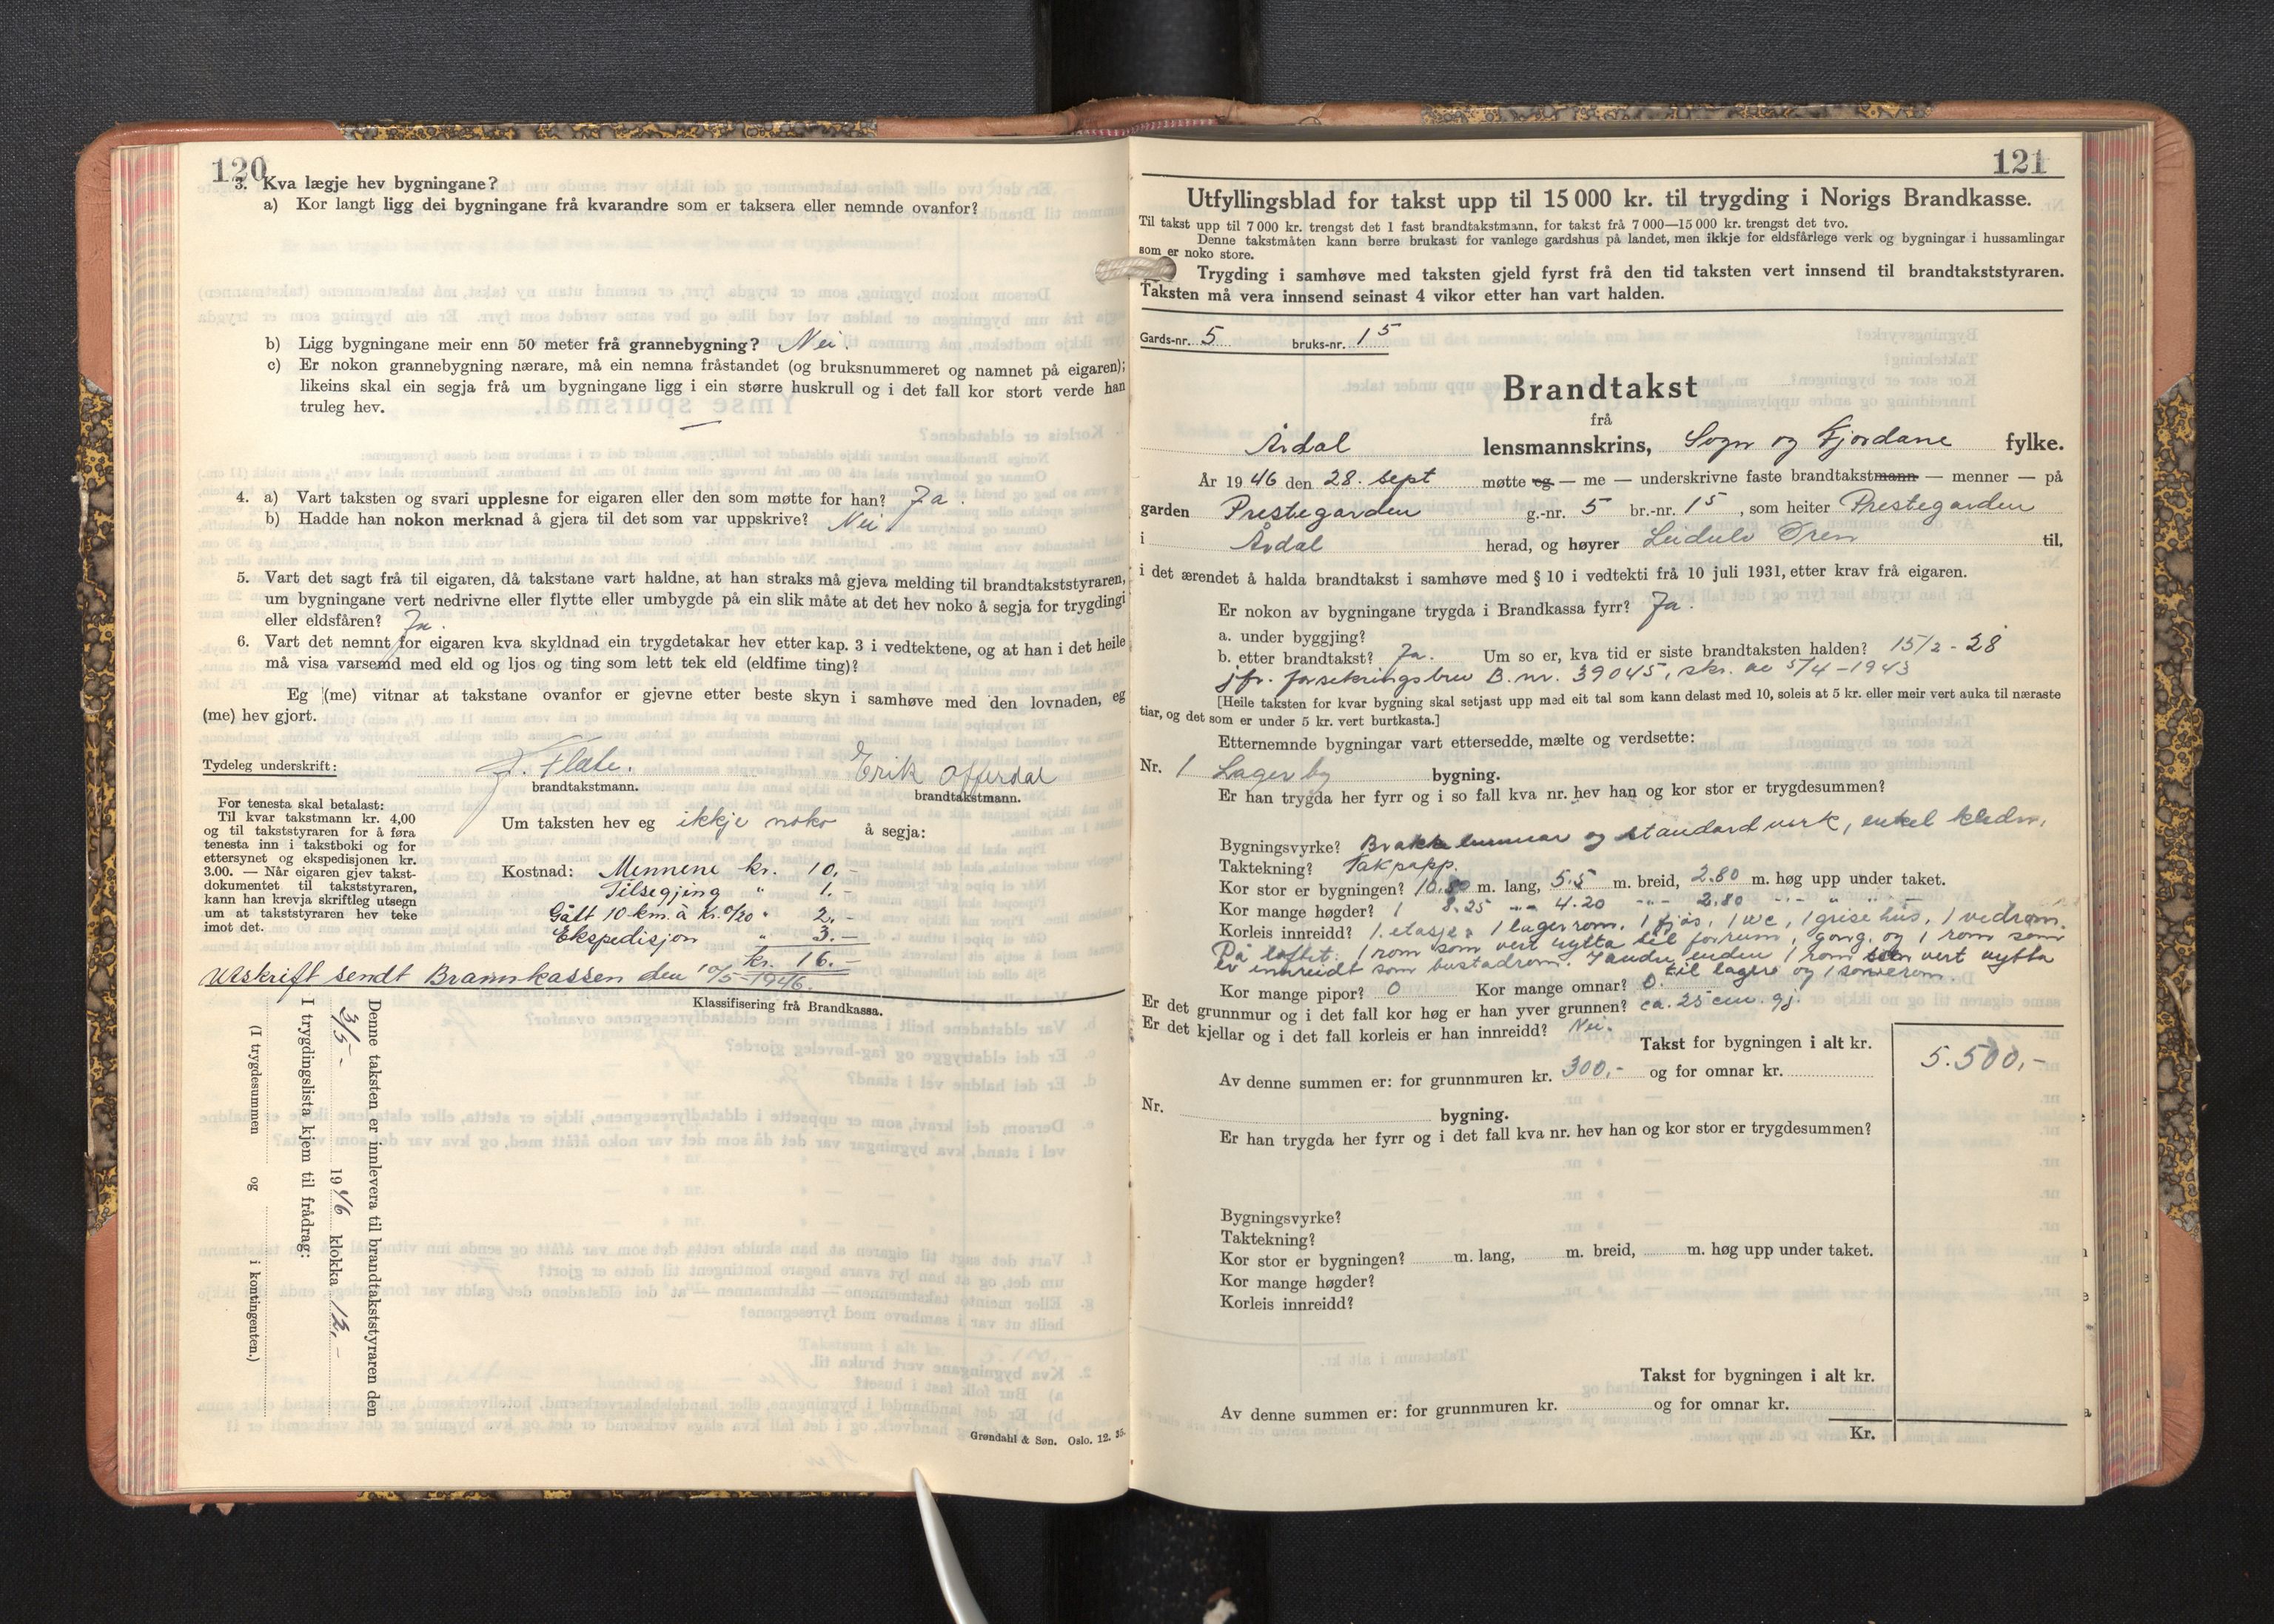 120
3. Kva lægje hev bygningane?
a) Kor langt ligg dei bygningane frå kvarandre som er taksera eller nemnde ovanfor?
b) Ligg bygningane meir enn 50 meter frå grannebygning? Nei.
c) Er nokon grannebygning nærare, må ein nemna fråstandet (og bruksnummeret og namnet på eigaren);
likeins skal ein segja frå um bygningane ligg i ein større huskrull og i det fall kor stort verde han
truleg hev.
4. a) Vart taksten og svari upplesne for eigaren eller den som møtte for han? Ja.
b) Hadde han nokon merknad å gjera til det som var uppskrive? Nei
5. Vart det sagt frå til eigaren, då takstane vart haldne, at han straks må gjeva melding til brandtakststyraren,
um bygningane vert nedrivne eller flytte eller umbygde på ein slik måte at det hev noko å segja for trygdingi
eller eldsfåren? Ja.
6. Vart det nemnt for eigaren kva skyldnad ein trygdetakar hev etter kap. 3 i vedtektene, og at han i det heile
må visa varsemd med eld og ljos og ting som lett tek eld (eldfime ting)?
Eg (me) vitnar at takstane ovanfor er gjevne etter beste skyn i samhøve med den lovnaden, eg
(me) hev gjort.
Tydeleg underskrift: J. Flate. Erik Offerdal
brandtakstmann. brandtakstmann.
For tenesta skal betalast:
Til kvar takstmann kr. 4,00
og til takststyraren for å føra
tenesta inn i takstboki og for
ettersynet og ekspedisjonen kr.
3.00. — Når eigaren gjev takst-
dokumentet til takststyraren,
kann han krevja skriftleg utsegn
um at takststyraren hev teke
imot det.
Um taksten hev eg ikkje noko å segja:
Kostnad: Mennene kr. 10,-
Tilsegjing " 1.-
Gått 10 km. à kr. 0/20 " 2.-
Ekspedisjon " 3.-
kr. 16.-
Utskrift sendt Brannkassen den 10/5-1946.
Klassifisering frå Brandkassa.
Denne taksten er innlevera til brandtakststyraren den
3/5- 1946 klokka 12.-
I trygdingslista kjem til frådrag:
(I trygdesummen og i kontingenten.)
Grøndahl & Søn. Oslo. 12. 35.
121
Utfyllingsblad for takst upp til 15 000 kr. til trygding i Norigs Brandkasse.
Til takst upp til 7 000 kr. trengst det 1 fast brandtakstmann, for takst frå 7 000—15 000 kr. trengst det tvo.
Denne takstmåten kann berre brukast for vanlege gardshus på landet, men ikkje for eldsfårlege verk og bygningar i hussamlingar
som er noko store.
Trygding i samhøve med taksten gjeld fyrst frå den tid taksten vert innsend til brandtakststyraren.
Taksten må vera innsend seinast 4 vikor etter han vart halden.
Gards-nr. 5 bruks-nr. 15
Brandtakst
frå
Årdal lensmannskrins, Sogn og Fjordane fylke.
År 1946 den 28. sept møtte eg — me — underskrivne faste brandtakstmann — menner — på
garden Prestegarden g.-nr. 5 br.-nr. 15, som heiter Prestegarden
i Årdal herad, og høyrer Ludulv Øren til,
i det ærendet å halda brandtakst i samhøve med § 10 i vedtekti frå 10 juli 1931, etter krav frå eigaren.
Er nokon av bygningane trygda i Brandkassa fyrr? Ja.
a. under byggjing?
b. etter brandtakst? Ja. Um so er, kva tid er siste brandtaksten halden? 15/2-28
jfr. forsekringsbrev B. nr. 39045, skr. av 5/4-1943
[Heile taksten for kvar bygning skal setjast upp med eit tal som kann delast med 10, soleis at 5 kr. eller meir vert auka til næraste
tiar, og det som er under 5 kr. vert burtkasta.]
Etternemnde bygningar vart ettersedde, mælte og verdsette:
Nr. 1 Lagerby bygning.
Er han trygda her fyrr og i so fall kva nr. hev han og kor stor er trygdesummen?
Bygningsvyrke? Brakkelemmar og standardverk, enkel kledn.
Taktekning? Takpapp
Kor stor er bygningen? 10.80 m. lang, 5.5 m. breid, 2.80 m. høg upp under taket.
Kor mange høgder? 1 8.25 " 4.20 " 2.80 " " "
Korleis innreidd? 1. etasje: 1 lagerrom, 1 fjøs, 1 wc, 1 grisehus, 1 vedrom.
På loftet: 1 rom som vert nytta til forrum, gong, og 1 rom som
er innreidt som bustadrom. I andre enden 1 rom som vert nytta
til lager og 1 soverom.
Kor mange pipor? 0 Kor mange omnar? 0.
Er det grunnmur og i det fall kor høg er han yver grunnen? ca. 25 cm. gj.
Er det kjellar og i det fall korleis er han innreidd? Nei.
Takst for bygningen i alt kr. 5.500,-
Av denne summen er: for grunnmuren kr. 300,- og for omnar kr.
Nr. bygning.
Er han trygda her fyrr og i det fall kva nr. hev han og kor stor er trygdesummen?
Bygningsvyrke?
Taktekning?
Kor stor er bygningen? m. lang, m. breid, m. høg upp under taket.
Kor mange høgder?
Korleis innreidd?
Takst for bygningen i alt kr.
Av denne summen er: for grunnmuren kr. og for omnar kr.
Kr.